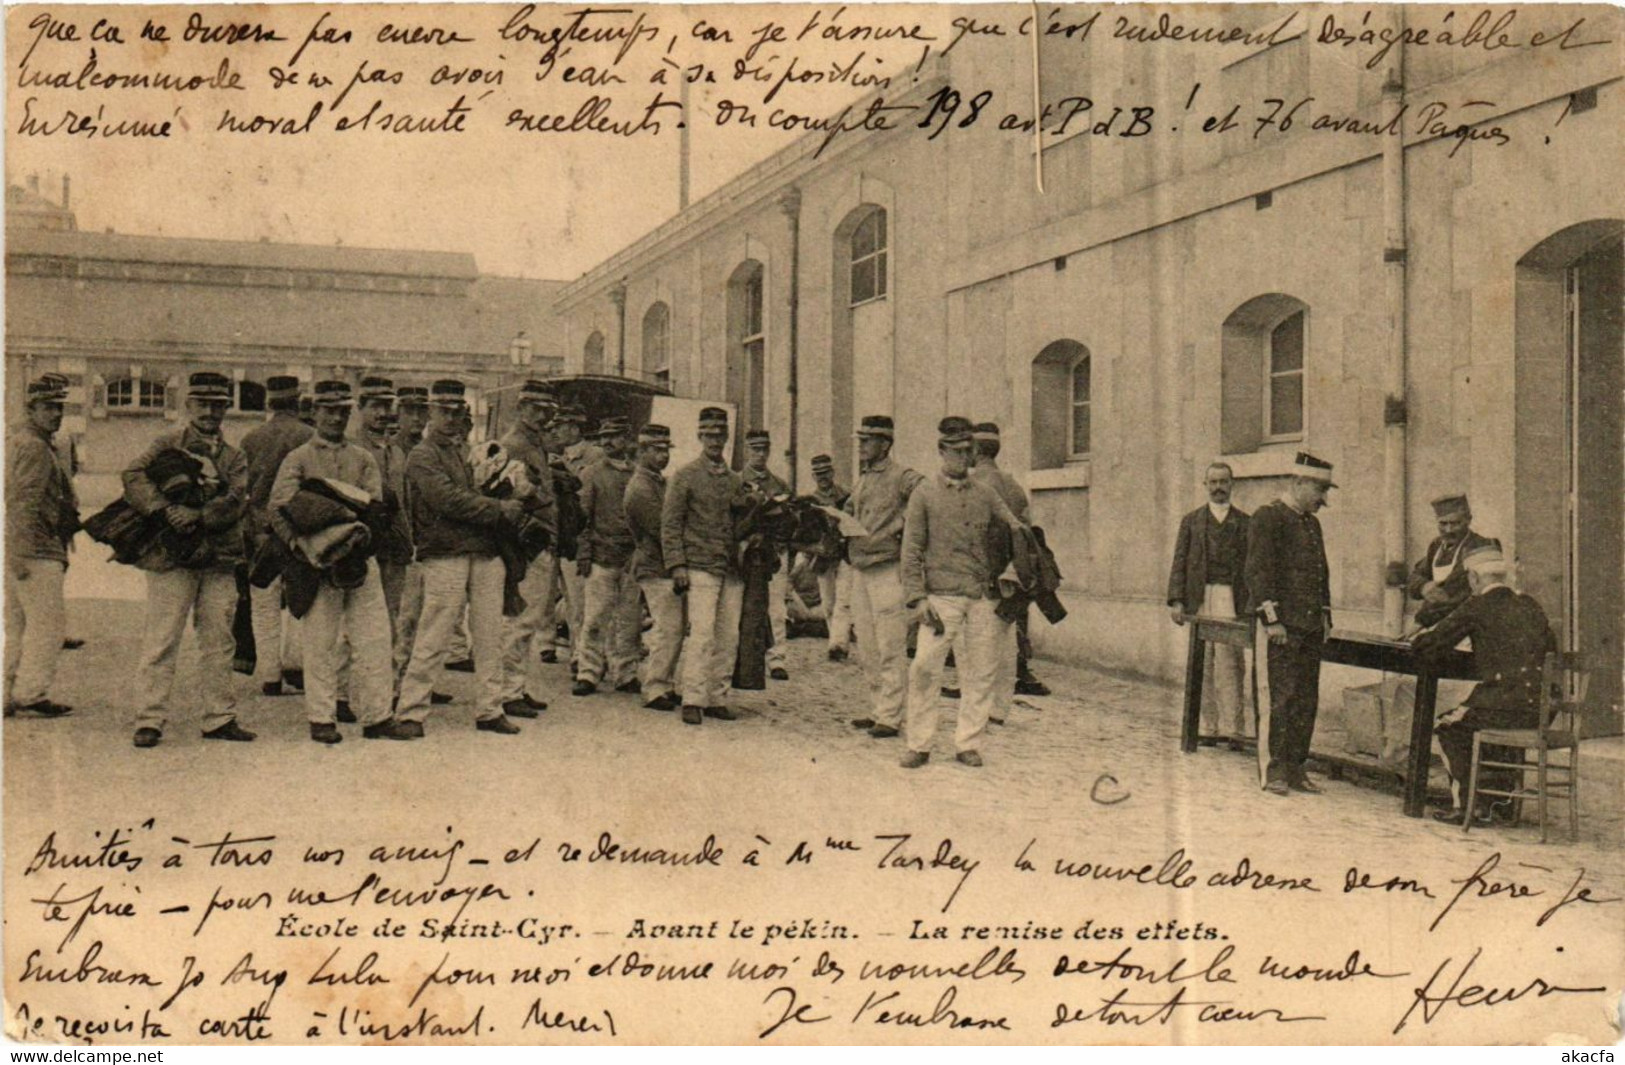 que ça ne durera pas encore longtemps, car je t'assure que c'est rudement désagréable et
malcommode de ne pas avoir d'eau à sa disposition !
En résumé moral et santé excellents. On compte 198 avt P d B ! et 76 avant Pâques !
Amitiés à tous nos amis – et redemande à Mme Tardey la nouvelle adresse de son frère Je
te prie – pour me l'envoyer.
École de Saint-Cyr. – Avant le pékin. – La remise des effets.
Embrasse Jo Aug Lulu pour moi et donne moi des nouvelles de tout le monde
Je reçois ta carte à l'instant. Merci
Je t'embrasse de tout coeur Henri
C
akacfa
akacfa